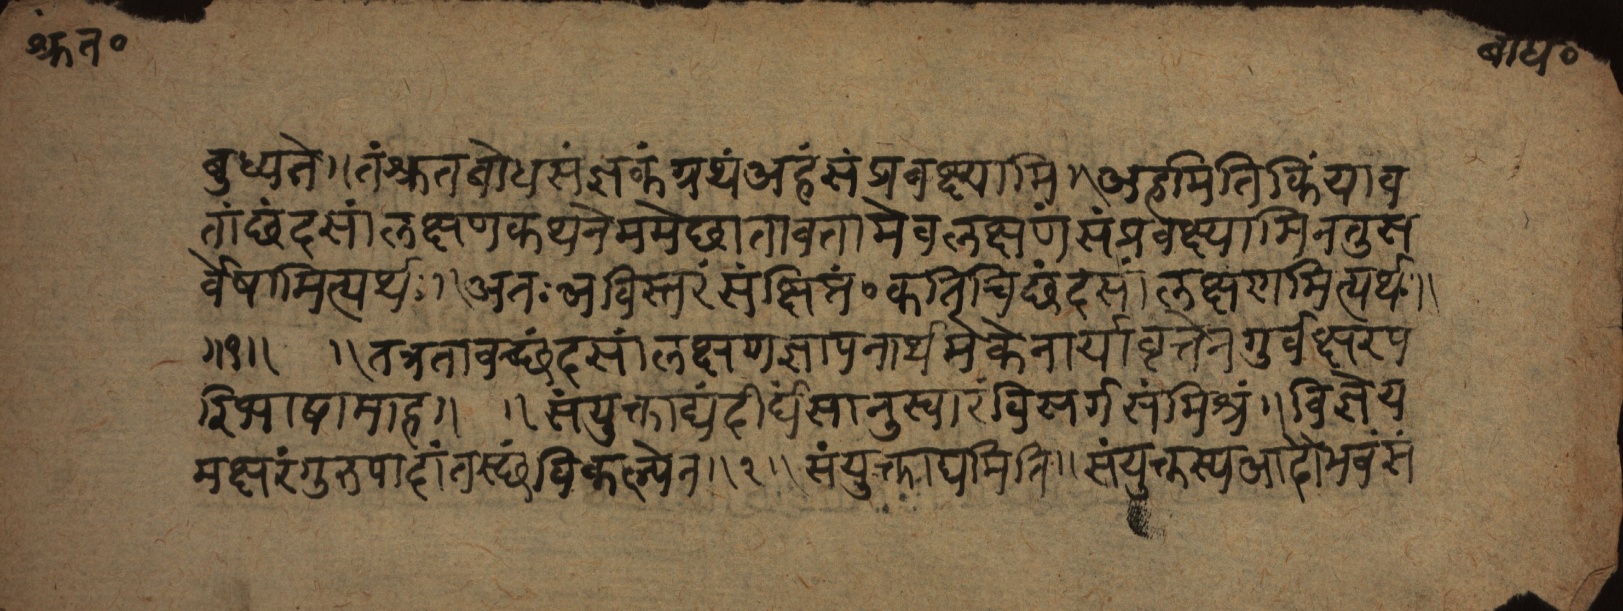 श्रुत॰
बोध॰
बुध्यते॥तंश्रुतबोधसंज्ञकंग्रथंअहंसंप्रवक्ष्यामि॥अहमितिकिंयाव
तांछंदसांलक्षणकथनेममेछातावतामेवलक्षणंसंप्रवक्ष्यामिनतुस
र्वेषामित्यर्थः॥अतःअविस्तरंसंक्षिप्तं॰कतिचिछंदसांलक्षणमित्यर्थः॥
॥१॥ ॥तत्रतावच्छंदसांलक्षणज्ञापनार्थमेकेनार्यावृत्तेनगुर्वक्षरप
रिभाषामाह॥ ॥संयुक्ताद्यंदीर्घंसानुस्वारंविसर्गसंमिश्रं॥विज्ञेय
मक्षरंगुरुपादांतस्छंविकल्पेन॥२॥संयुक्ताद्यमिति॥संयुक्तस्यआदौभवंसं